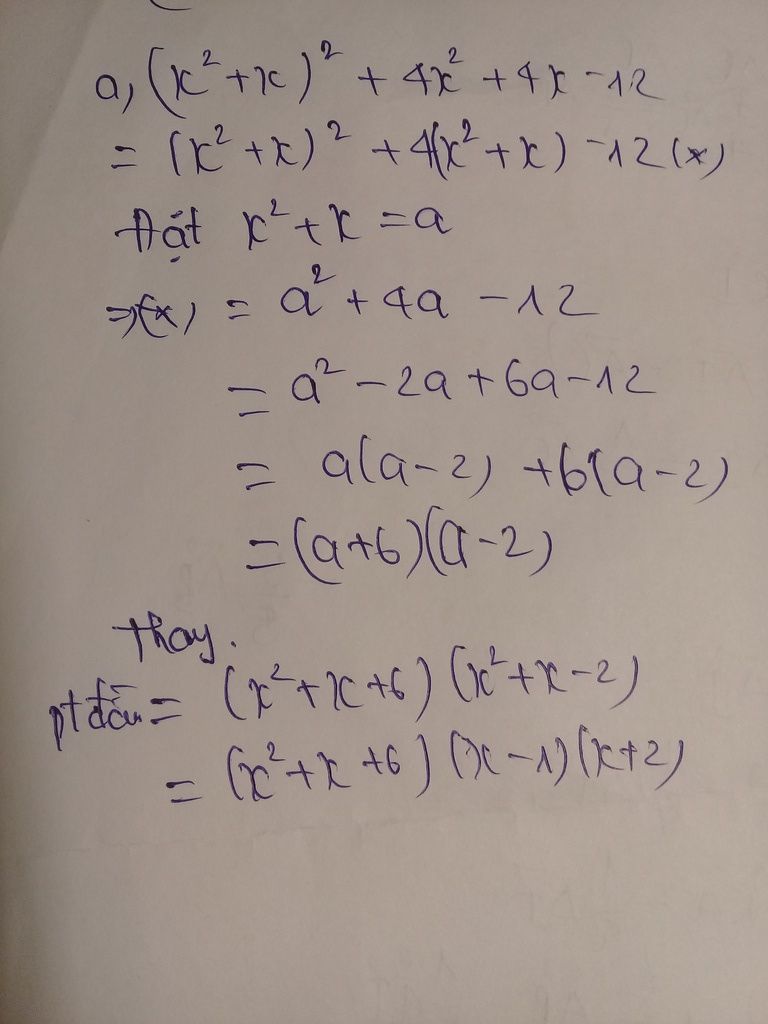 a, (x² + x)² + 4x² + 4x - 12
= (x² + x)² + 4(x² + x) - 12 (*)
Đặt x² + x = a
=> (*) = a² + 4a - 12
= a² - 2a + 6a - 12
= a(a - 2) + 6(a - 2)
= (a + 6)(a - 2)
Thay.
pt đầu = (x² + x + 6)(x² + x - 2)
= (x² + x + 6)(x - 1)(x + 2)